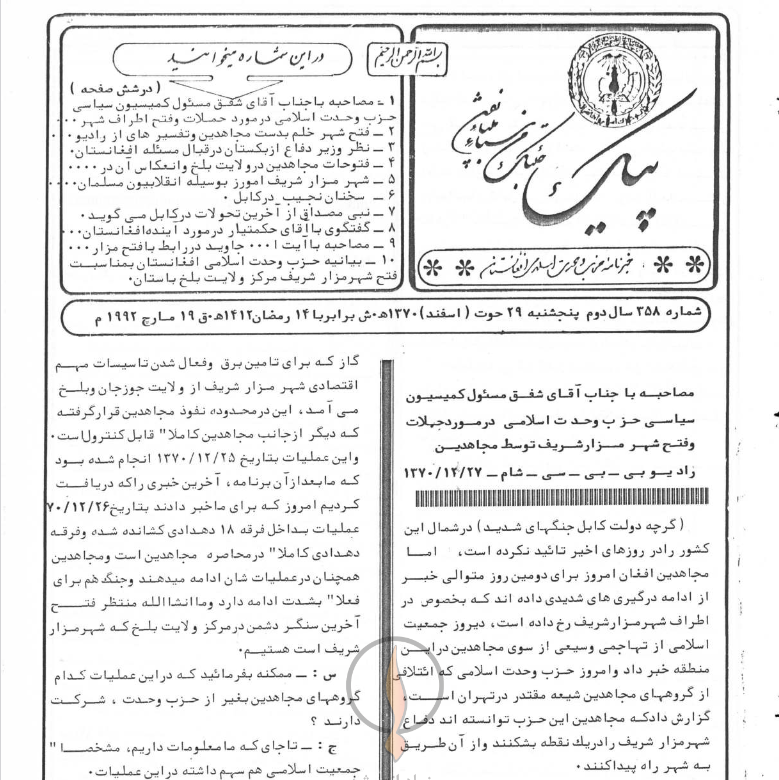 بسم الله الرحمن الرحیم
پیک
خبرنامه حزب وحدت اسلامی افغانستان
در این شماره میخوانید
( درشش صفحه )
۱ ـ مصاحبه باجناب آقای شفق مسئول کمیسیون سیاسی
حزب وحدت اسلامی درمورد حملات وفتح اطراف شهر ۰۰۰
۲ ــ فتح شهر خلم بدست مجاهدین وتفسیر های از رادیو۰۰۰
۳ ــ نظر وزیر دفاع ازبکستان درقبال مسئله افغانستان۰
۴ ــ فتوحات مجاهدین درولایت بلخ وانعکاس آن در ۰۰۰۰
۵ ــ شهر مزار شریف امورز بوسیله انقلابیون مسلمان۰۰۰۰
۶ ــ سخنان نجیب درکابل ۰
۷ ــ نبی مصداق از آخرین تحولات درکابل می گوید۰
۸ ــ گفتگوی باآقای حکمتیار درمورد آینده افغانستان۰۰۰
۹ ــ مصاحبه باآیت ا ۰۰۰ جاوید دررابط بافتح مزار ۰۰۰
۱۰ ــ بیانیه حزب وحدت اسلامی افغانستان بمناسبت
فتح شهرمزار شریف مرکز ولایت بلخ باستان۰
شماره ۳۵۸ سال دوم پنجشنبه ۲۹ حوت ( اسفند) ۱۳۷۰ه۰ش برابربا ۱۴ رمضان ۱۴۱۲ه۰ق ۱۹ مارچ ۱۹۹۲ م
مصاحبه با جناب آقای شفق مسئول کمیسیون
سیاسی حزب وحدت اسلامی درموردحملات
وفتح شهر مزارشریف توسط مجاهدین
رادیو بی ــ بی ــ سی ــ شام ــ ۱۳۷۰/۱۲/۲۷
( گرچه دولت کابل جنگهای شدید) درشمال این
کشور رادر روزهای اخیر تائید نکرده است، اما
مجاهدین افغان امروز برای دومین روز متوالی خبر
از ادامه درگیری های شدیدی داده اند که بخصوص در
اطراف شهرمزارشریف رخ داده است، دیروز جمعیت
اسلامی از تهاجمی وسیعی از سوی مجاهدین دراین
منطقه خبر داد وامروز حزب وحدت اسلامی که ائتلافی
از گروههای مجاهدین شیعه مقتدر درتهران است،
گزارش دادکه مجاهدین این حزب توانسته اند دفاع
شهرمزار شریف رادریك نقطه بشکنند واز آن طریق
به شهر راه پیداکنند۰
گاز که برای تامین برق وفعال شدن تاسیسات مهم
اقتصادی شهر مزار شریف از ولایت جوزجان وبلخ
می آمد، این درمحدوده نفوذ مجاهدین قرارگرفته
که دیگر ازجانب مجاهدین کاملا" قابل کنترول است۰
واین عملیات بتاریخ ۱۳۷۰/۱۲/۲۵ انجام شده بود
که مابعدازآن برنامه، آخرین خبری راکه دریافت
کردیم امروز که برای ماخبر دادند بتاریخ ۷۰/۱۲/۲۶
عملیات بداخل فرقه ۱۸ دهدادی کشانده شده وفرقه
دهدادی کاملا" درمحاصره مجاهدین است ومجاهدین
همچنان درعملیات شان ادامه میدهند وجنگ هم برای
فعلا" بشدت ادامه دارد وماانشاالله منتظر فتح
آخرین سنگر دشمن درمرکز ولایت بلخ که شهرمزار
شریف است هستیم۰
س : ــ ممکنه بفرمائید که دراین عملیات کدام
گروههای مجاهدین بغیر از حزب وحدت ، شرکت
دارند ؟
ج : ــ تاجای که مامعلومات داریم، مشخصا "
جمعیت اسلامی هم سهم داشته دراین عملیات۰